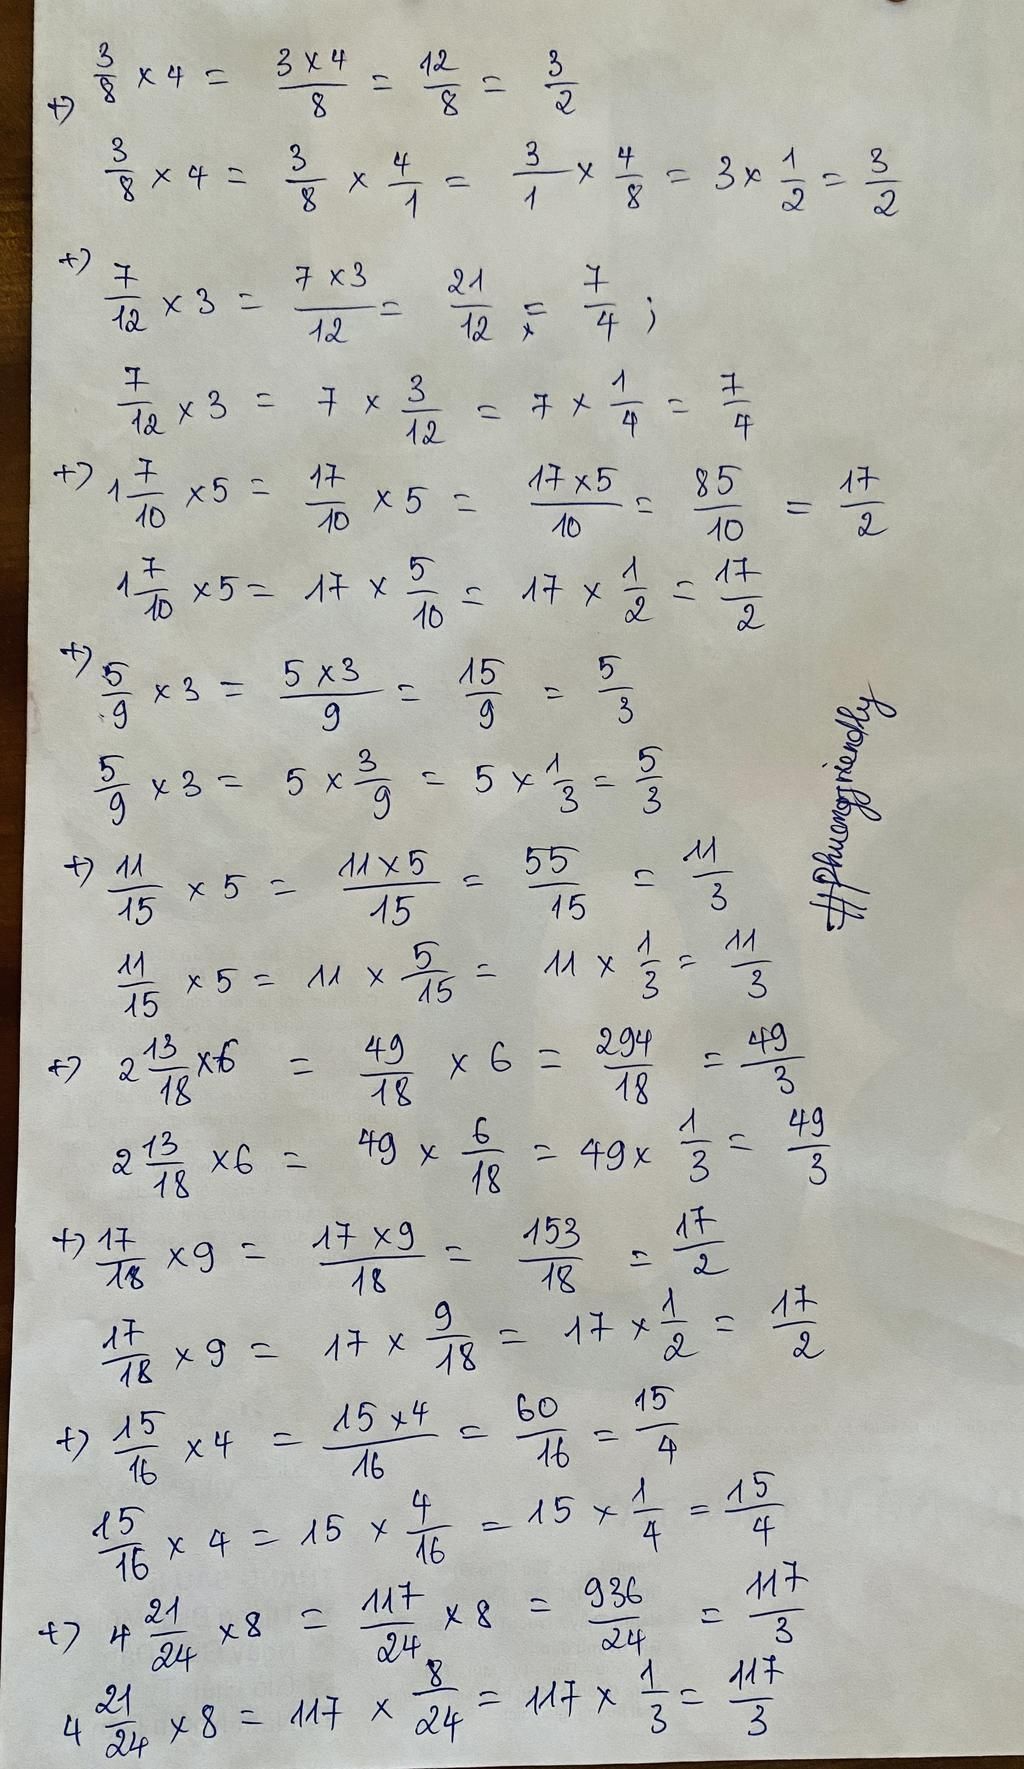 +) 3/8 × 4 = (3 × 4)/8 = 12/8 = 3/2
3/8 × 4 = 3/8 × 4/1 = 3/1 × 4/8 = 3 × 1/2 = 3/2
+) 7/12 × 3 = (7 × 3)/12 = 21/12 = 7/4 ;
7/12 × 3 = 7 × 3/12 = 7 × 1/4 = 7/4
+) 1 7/10 × 5 = 17/10 × 5 = (17 × 5)/10 = 85/10 = 17/2
1 7/10 × 5 = 17 × 5/10 = 17 × 1/2 = 17/2
+) 5/9 × 3 = (5 × 3)/9 = 15/9 = 5/3
5/9 × 3 = 5 × 3/9 = 5 × 1/3 = 5/3
+) 11/15 × 5 = (11 × 5)/15 = 55/15 = 11/3
11/15 × 5 = 11 × 5/15 = 11 × 1/3 = 11/3
+) 2 13/18 × 6 = 49/18 × 6 = 294/18 = 49/3
2 13/18 × 6 = 49 × 6/18 = 49 × 1/3 = 49/3
+) 17/18 × 9 = (17 × 9)/18 = 153/18 = 17/2
17/18 × 9 = 17 × 9/18 = 17 × 1/2 = 17/2
+) 15/16 × 4 = (15 × 4)/16 = 60/16 = 15/4
15/16 × 4 = 15 × 4/16 = 15 × 1/4 = 15/4
+) 4 21/24 × 8 = 117/24 × 8 = 936/24 = 117/3
4 21/24 × 8 = 117 × 8/24 = 117 × 1/3 = 117/3
#Phuongfriendly